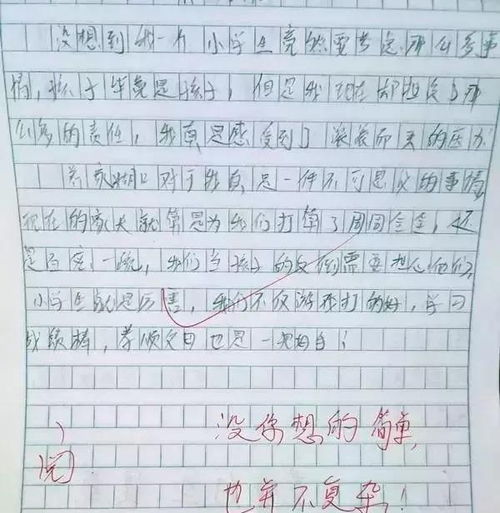 没想到我一个小学生竟然要考虑那么多事
情，孩子毕竟是孩子，但是我现在却担负了那
么多的责任，我真是感受到了深深而来的压力
养家糊口对于我真是一件不可思议的事情
现在的家长就算是为我们打算了周周全全，还
是百密一疏，我们当孩子的反倒需要担心他们，
小学生就是厉害，我们不仅游戏打的好，学习
成绩棒，孝顺父母也是一把好手！
没你想的简单，
阅
也并不复杂！